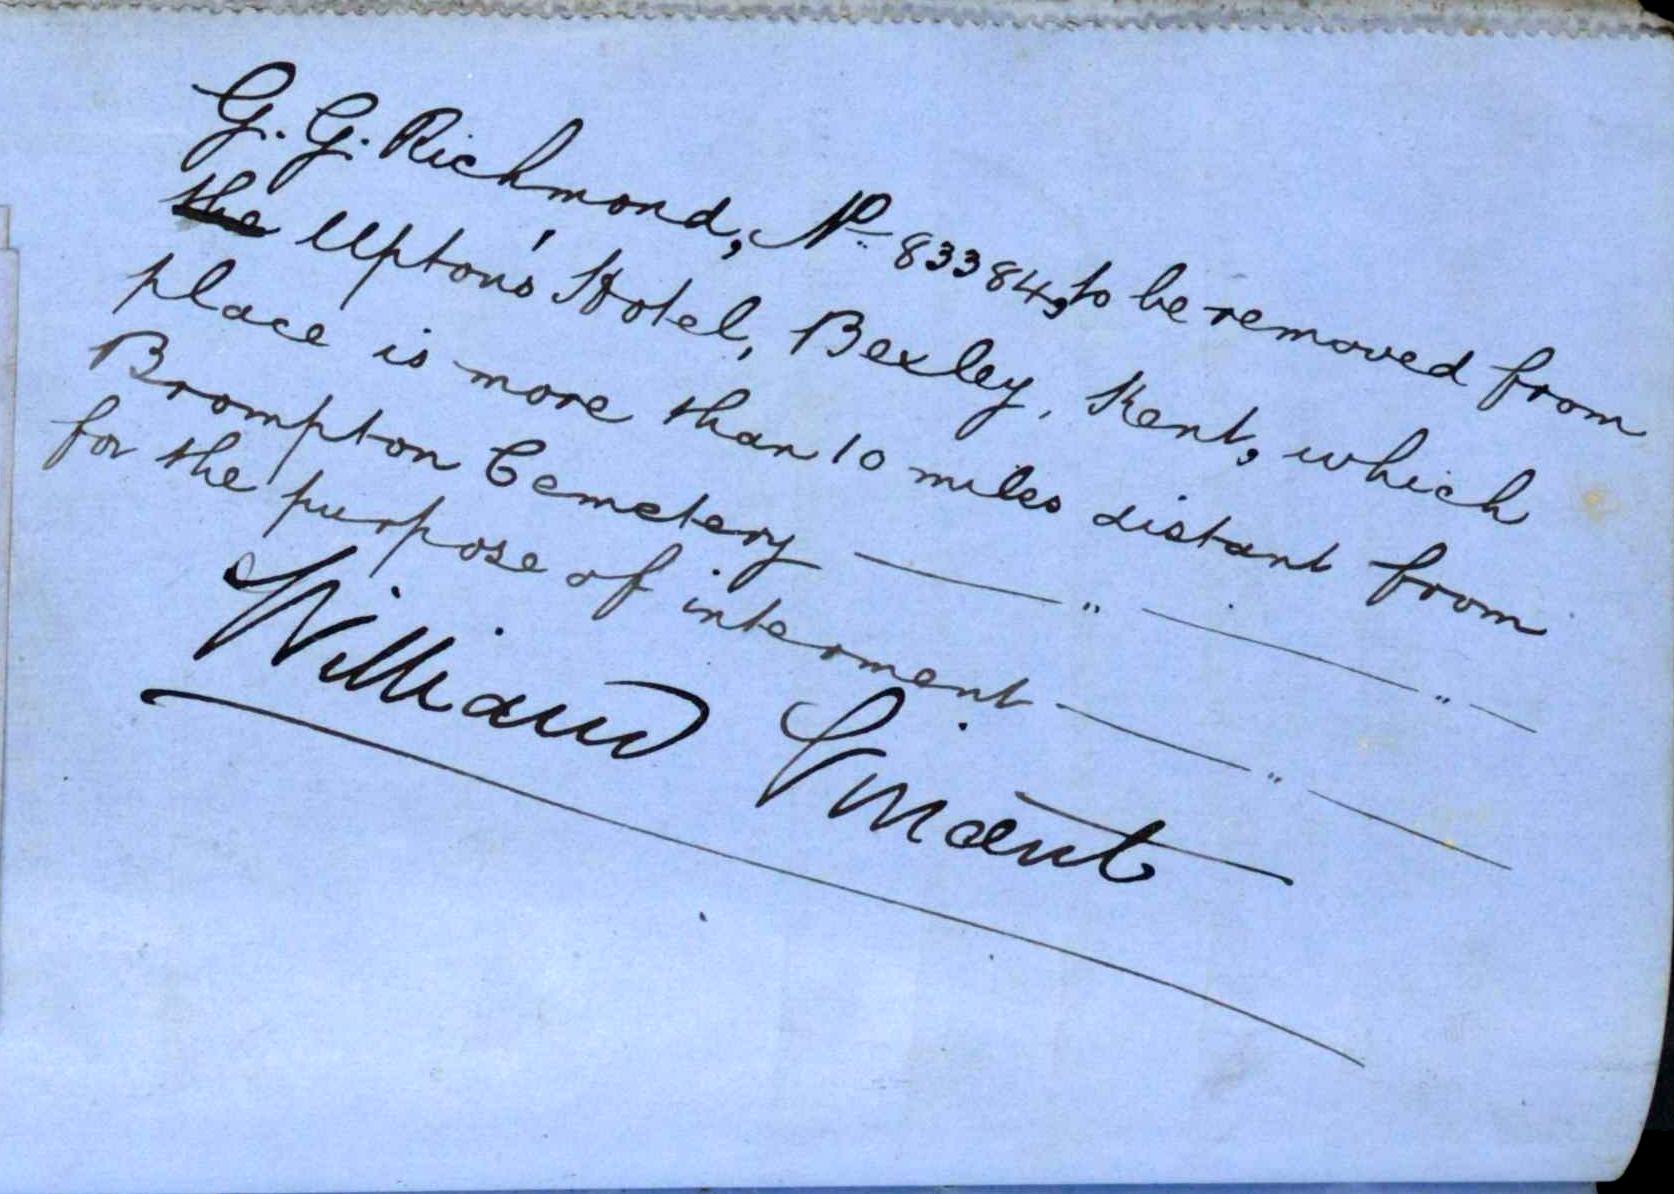 G. G. Richmond, No 83384, to be removed from
the Upton's Hotel, Bexley, Kent, which
place is more than 10 miles distant from
Brompton Cemetery — " — " —
for the purpose of interment — " —
William